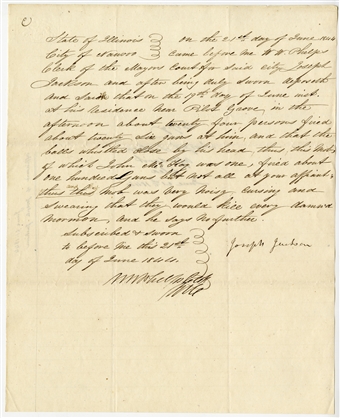 State of Illinois } on the 21st day of June 1844
City of Nauvoo } came before me W. W. Phelps
Clerk of the Mayors Court for said city Joseph
Jackson and after being duly sworn deposeth
and saith that on the 19th day of June inst.
at his residence near Pilot Grove, in the
afternoon about twenty four persons fired
about twenty six guns at him, and that the
balls whistled close by his head, thus this Mob,
of which John McKay was one, fired about
one hundred guns but not all at your affiant.
this Mob was very noisy cursing and
swearing that they would kill every damned
Mormon, and he says no further.
Subscribed & sworn
to before me this 21st
Joseph Jackson
day of June 1844.
W. W. Phelps Clerk